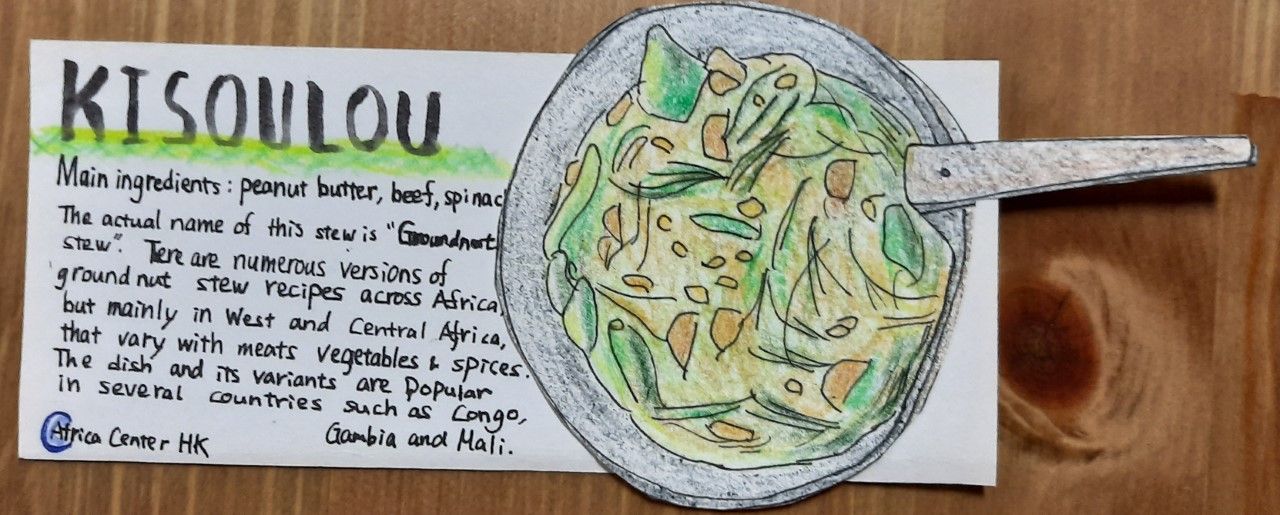 KISOULOU
Main ingredients : peanut butter, beef, spinac
The actual name of this stew is "Groundnut
stew". Tere are numerous versions of
ground nut stew recipes across Africa,
but mainly in West and Central Africa,
that vary with meats vegetables & spices.
The dish and its variants are popular
in several countries such as Congo,
Gambia and Mali.
Africa Center HK